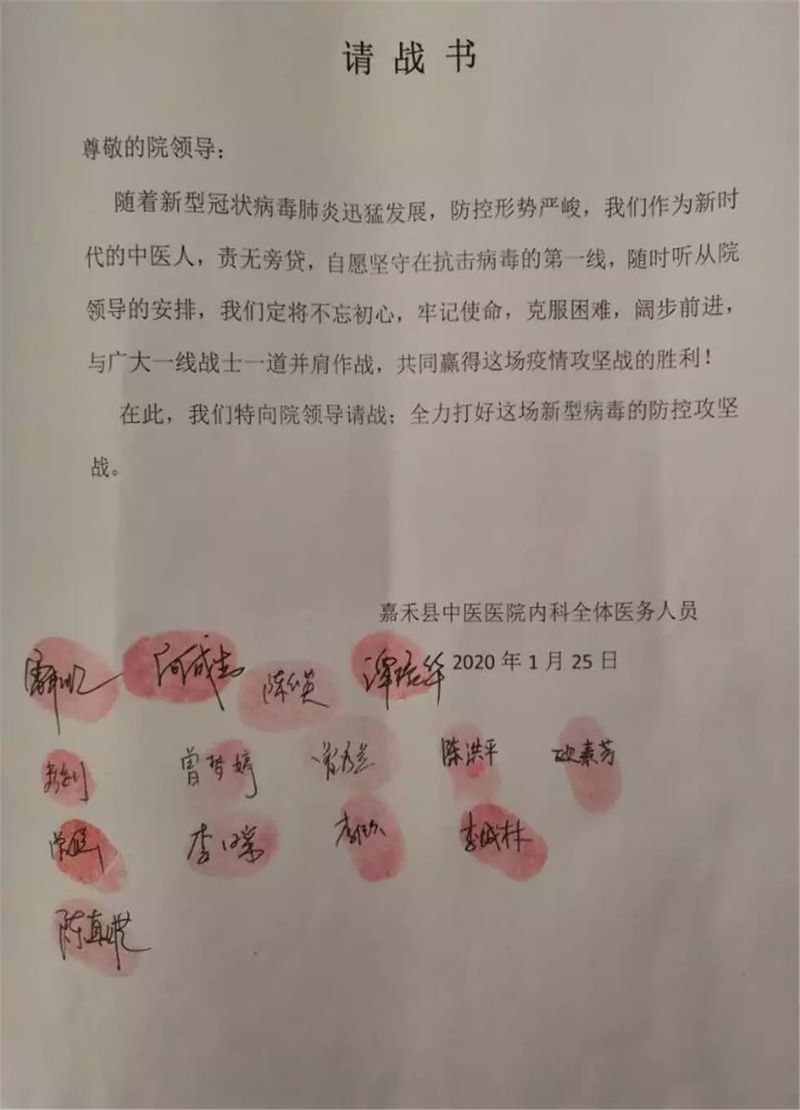 请战书
尊敬的院领导：
随着新型冠状病毒肺炎迅猛发展，防控形势严峻，我们作为新时
代的中医人，责无旁贷，自愿坚守在抗击病毒的第一线，随时听从院
领导的安排，我们定将不忘初心，牢记使命，克服困难，阔步前进，
与广大一线战士一道并肩作战，共同赢得这场疫情攻坚战的胜利！
在此，我们特向院领导请战；全力打好这场新型病毒的防控攻坚
战。
嘉禾县中医医院内科全体医务人员
2020年1月25日
曾梦婷 陈洪平 欧素芳
李成林